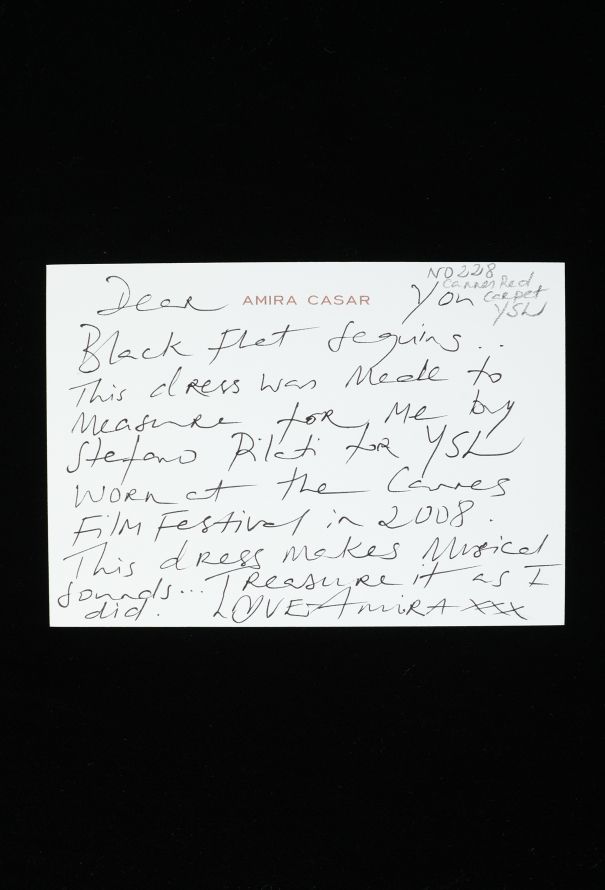 NO 228
Cannes Red
Carpet
YSL
Dear AMIRA CASAR You
Black Flat Sequins..
This dress was Made to
Measure for Me by
Stefano Pilati for YSL
WORN at the Cannes
Film Festival in 2008.
This dress makes Musical
sounds... Treasure it as I
did. LOVE AmiRA xxx